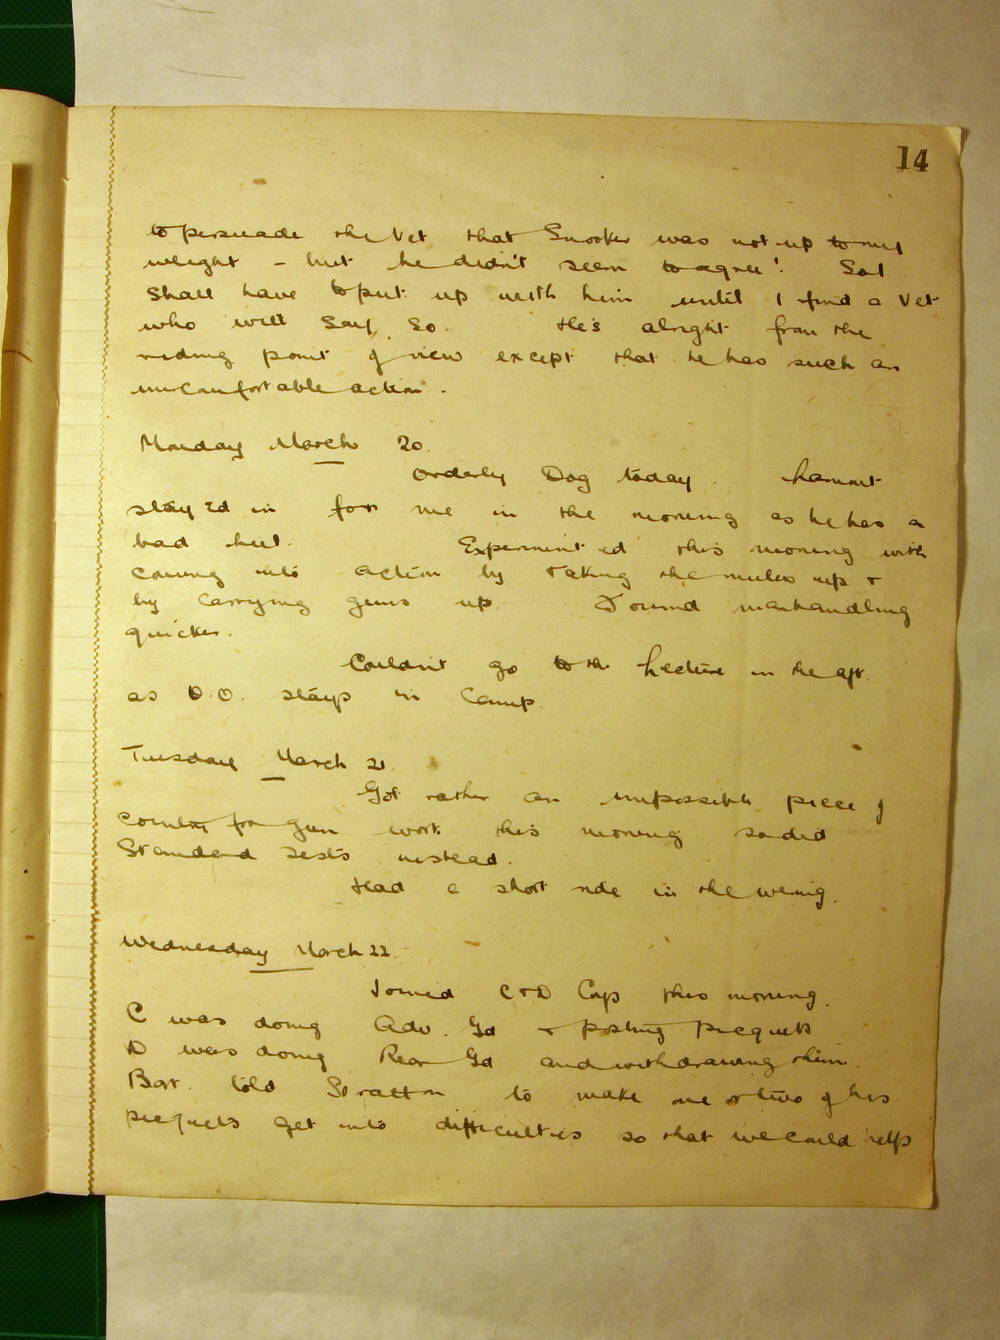 14
to persuade the Vet that Snooker was not up to my
weight - but he didn't seem to agree! So I
shall have to put up with him until I find a Vet
who will say so. He's alright from the
riding point of view except that he has such an
uncomfortable action.
Monday March 20.
Orderly Dog today.
stayed in for me in the morning as he has a
bad heel. Experimented this morning with
coming into action by taking the mules up &
by carrying guns up. Found manhandling
quicker.
Couldn't go to the Lecture in the aft.
as O.O. stays in Camp.
Tuesday March 21.
Got rather an impossible piece of
country for gun work this morning so did
Standard Tests instead.
Had a short ride in the evening.
Wednesday March 22.
Joined C & D Coys this morning.
C was doing Adv. Gd & posting picquets
D was doing Rear Gd and withdrawing them.
told Stratton to make one or two of his
picquets get into difficulties so that we could help